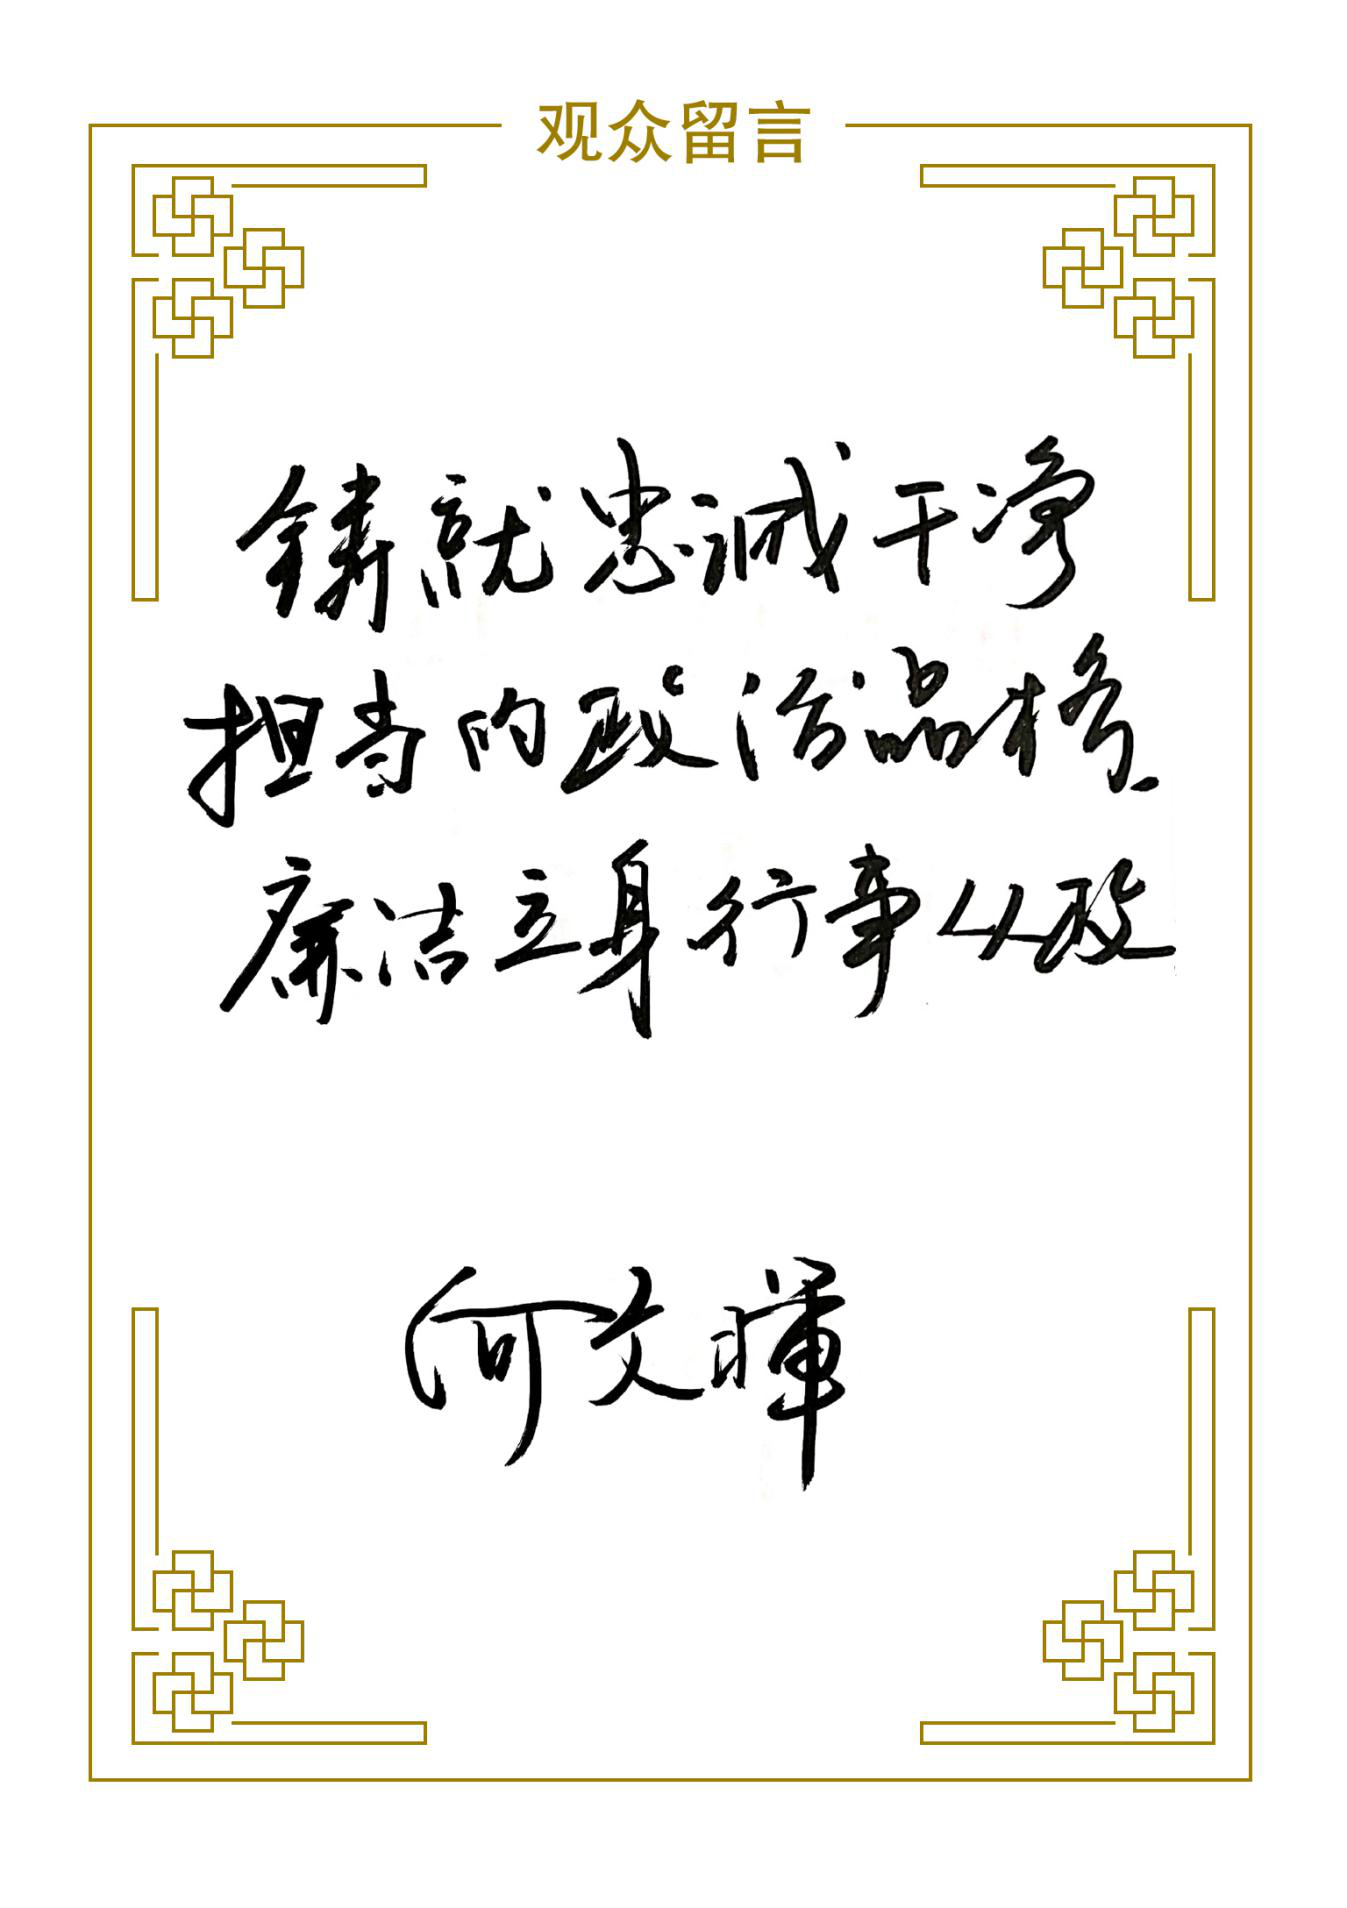 观众留言
铸就忠诚干净
担当的政治品格.
廉洁立身行事从政
何文晖